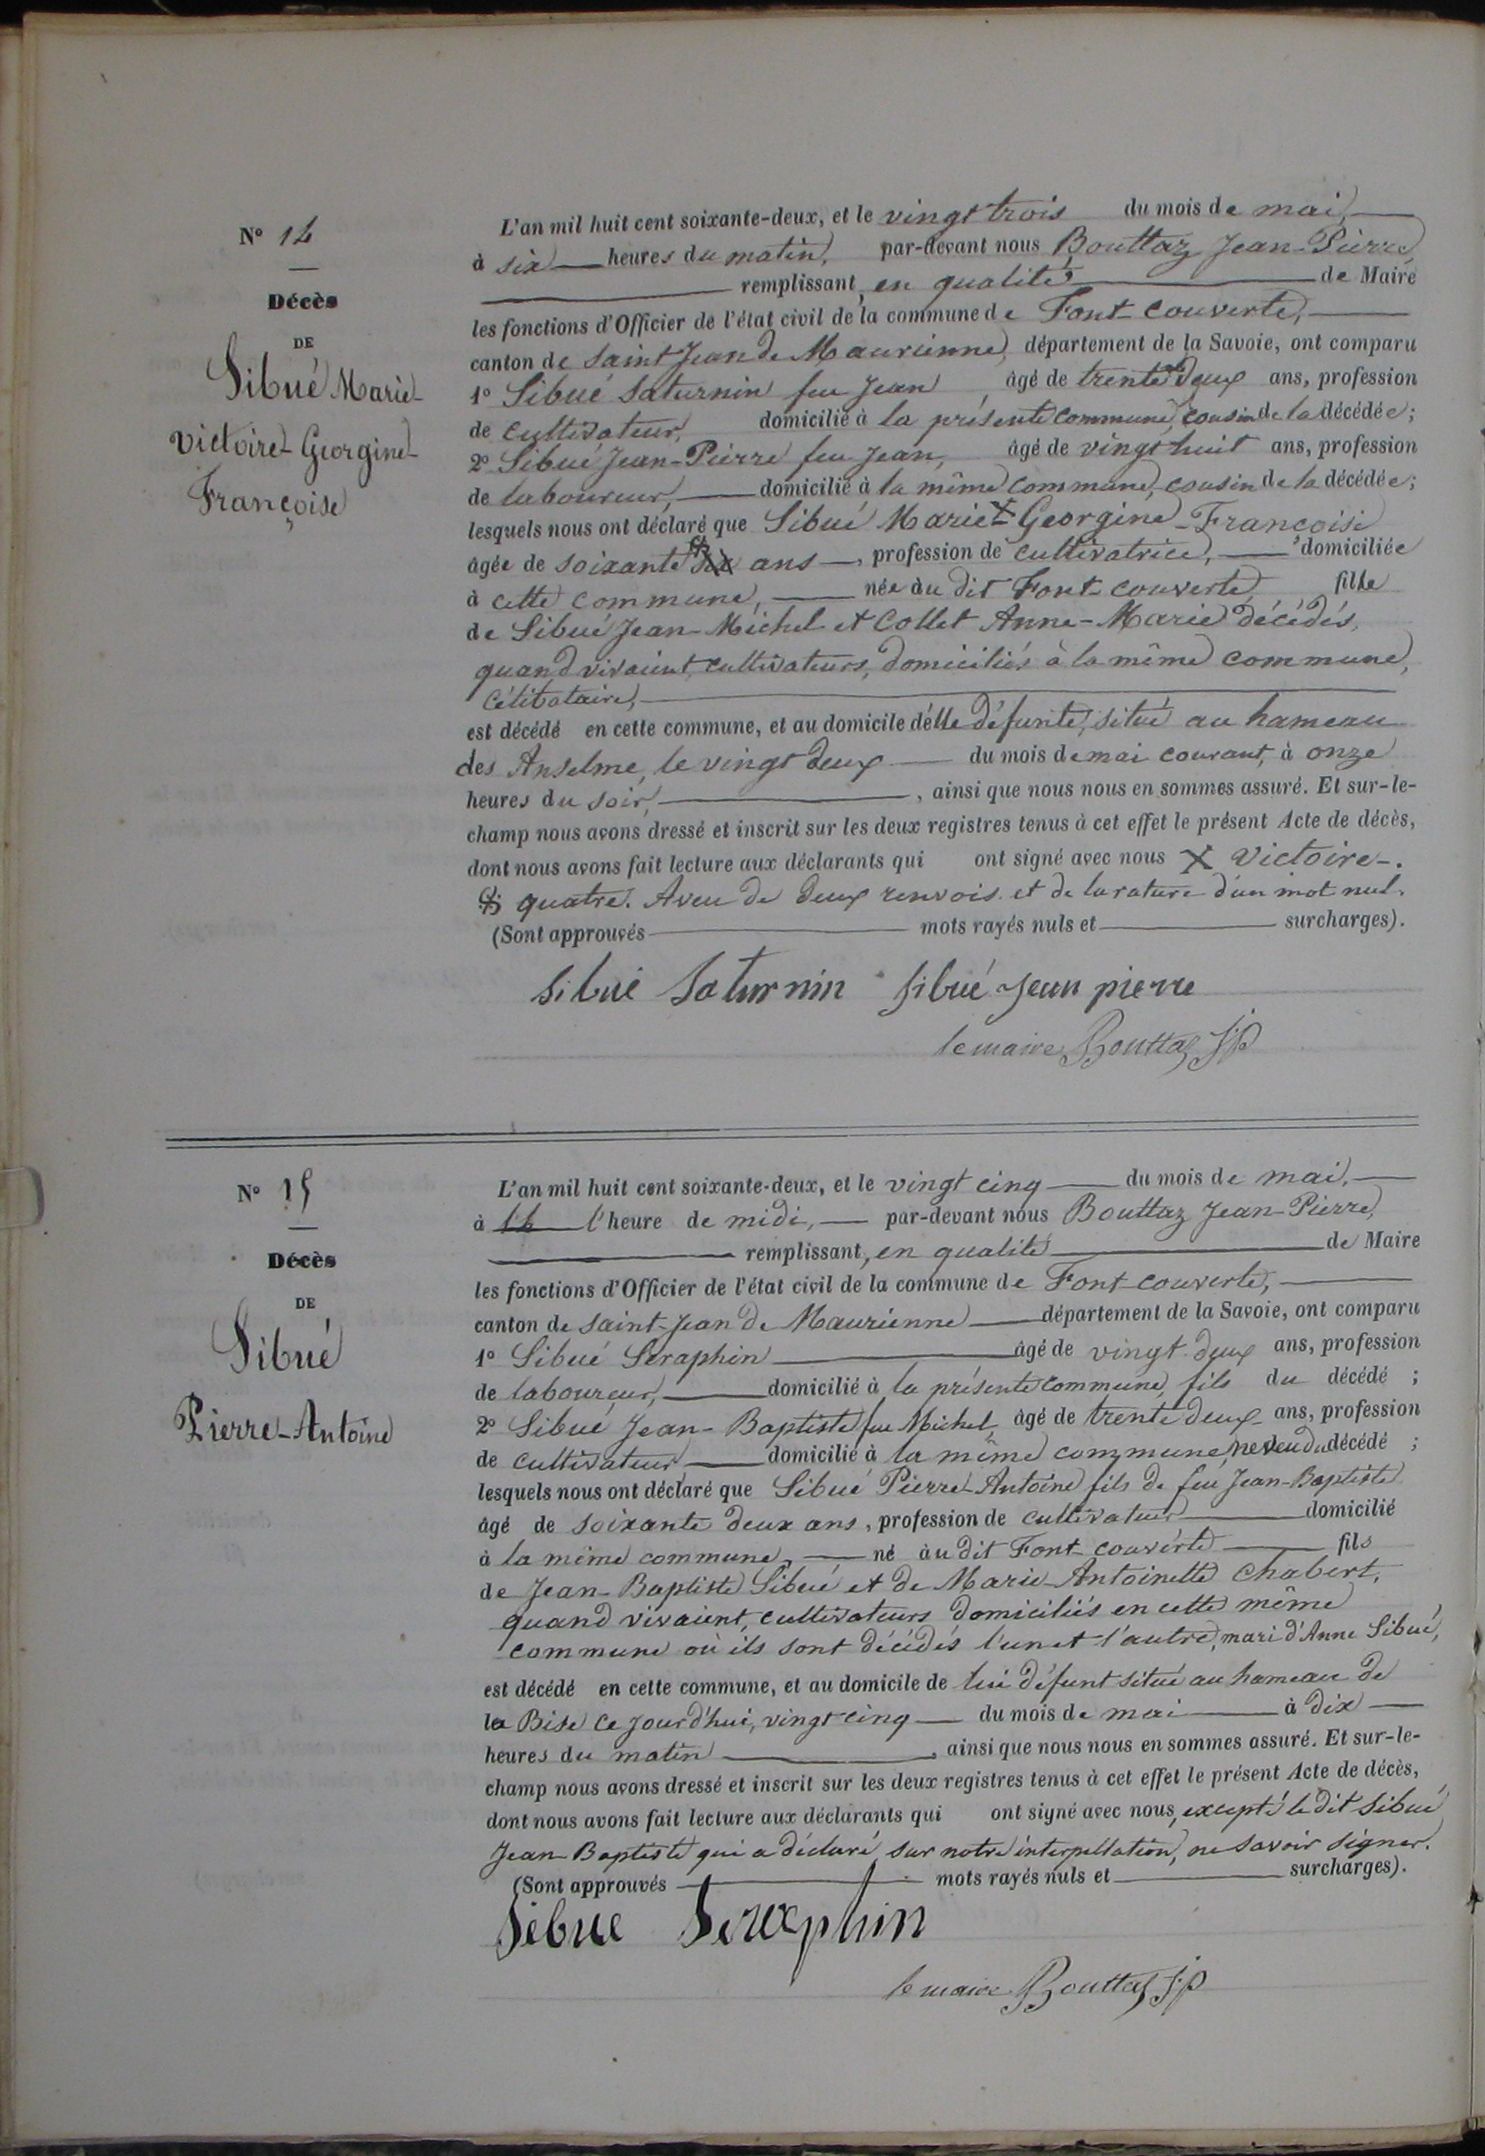 N° 14
Décès
DE
Sibué Marie-
Victoire-Georgine-
Françoise
L'an mil huit cent soixante-deux, et le vingt trois du mois de mai,
à six heures du matin, par-devant nous Bouttaz Jean-Pierre
remplissant, en qualité de Maire
les fonctions d'Officier de l'état civil de la commune de Font-couverte,
canton de Saint Jean de Maurienne, département de la Savoie, ont comparu
1° Sibué Saturnin feu Jean âgé de trente deux ans, profession
de cultivateur, domicilié à la présente commune, cousin de la décédée;
2° Sibué Jean-Pierre feu Jean, âgé de vingt huit ans, profession
de laboureur, domicilié à la même commune, cousin de la décédée;
lesquels nous ont déclaré que Sibué Marie X Georgine-Françoise
âgée de soixante six ans, profession de cultivatrice, domiciliée
à cette commune, née au dit Font-couverte, fille
de Sibué Jean-Michel et Collet Anne-Marie décédés,
quand vivaient, cultivateurs, domiciliés à la même commune,
célibataire,
est décédé en cette commune, et au domicile d'elle défunte, situé au hameau
des Anselme, le vingt deux du mois de mai courant, à onze
heures du soir, ainsi que nous nous en sommes assuré. Et sur-le-
champ nous avons dressé et inscrit sur les deux registres tenus à cet effet le présent Acte de décès,
dont nous avons fait lecture aux déclarants qui ont signé avec nous X Victoire-.
quatre. Aveu de deux renvois et de la rature d'un mot nul.
(Sont approuvés mots rayés nuls et surcharges).
Sibué Saturnin Sibué Jean pierre
le maire Bouttaz J P
N° 15
Décès
DE
Sibué
Pierre-Antoine
L'an mil huit cent soixante-deux, et le vingt cinq du mois de mai,
à l'heure de midi, par-devant nous Bouttaz Jean-Pierre,
remplissant, en qualité de Maire
les fonctions d'Officier de l'état civil de la commune de Font-couverte,
canton de Saint-Jean de Maurienne département de la Savoie, ont comparu
1° Sibué Séraphin âgé de vingt-deux ans, profession
de laboureur, domicilié à la présente commune, fils du décédé ;
2° Sibué Jean-Baptiste feu Michel, âgé de trente deux ans, profession
de cultivateur domicilié à la même commune, neveu du décédé ;
lesquels nous ont déclaré que Sibué Pierre-Antoine fils de feu Jean-Baptiste
âgé de soixante deux ans, profession de cultivateur domicilié
à la même commune, né au dit Font-couverte fils
de Jean-Baptiste Sibué et de Marie-Antoinette Chabert,
quand vivaient, cultivateurs domiciliés en cette même
commune où ils sont décédés l'un et l'autre, mari d'Anne Sibué,
est décédé en cette commune, et au domicile de lui défunt situé au hameau de
la Bise ce jourd'hui, vingt cinq du mois de mai à dix
heures du matin, ainsi que nous nous en sommes assuré. Et sur-le-
champ nous avons dressé et inscrit sur les deux registres tenus à cet effet le présent Acte de décès,
dont nous avons fait lecture aux déclarants qui ont signé avec nous, excepté le dit Sibué
Jean-Baptiste qui a déclaré, sur notre interpellation, ne savoir signer.
(Sont approuvés mots rayés nuls et surcharges).
Sibue Seraphin
le maire Bouttaz J P